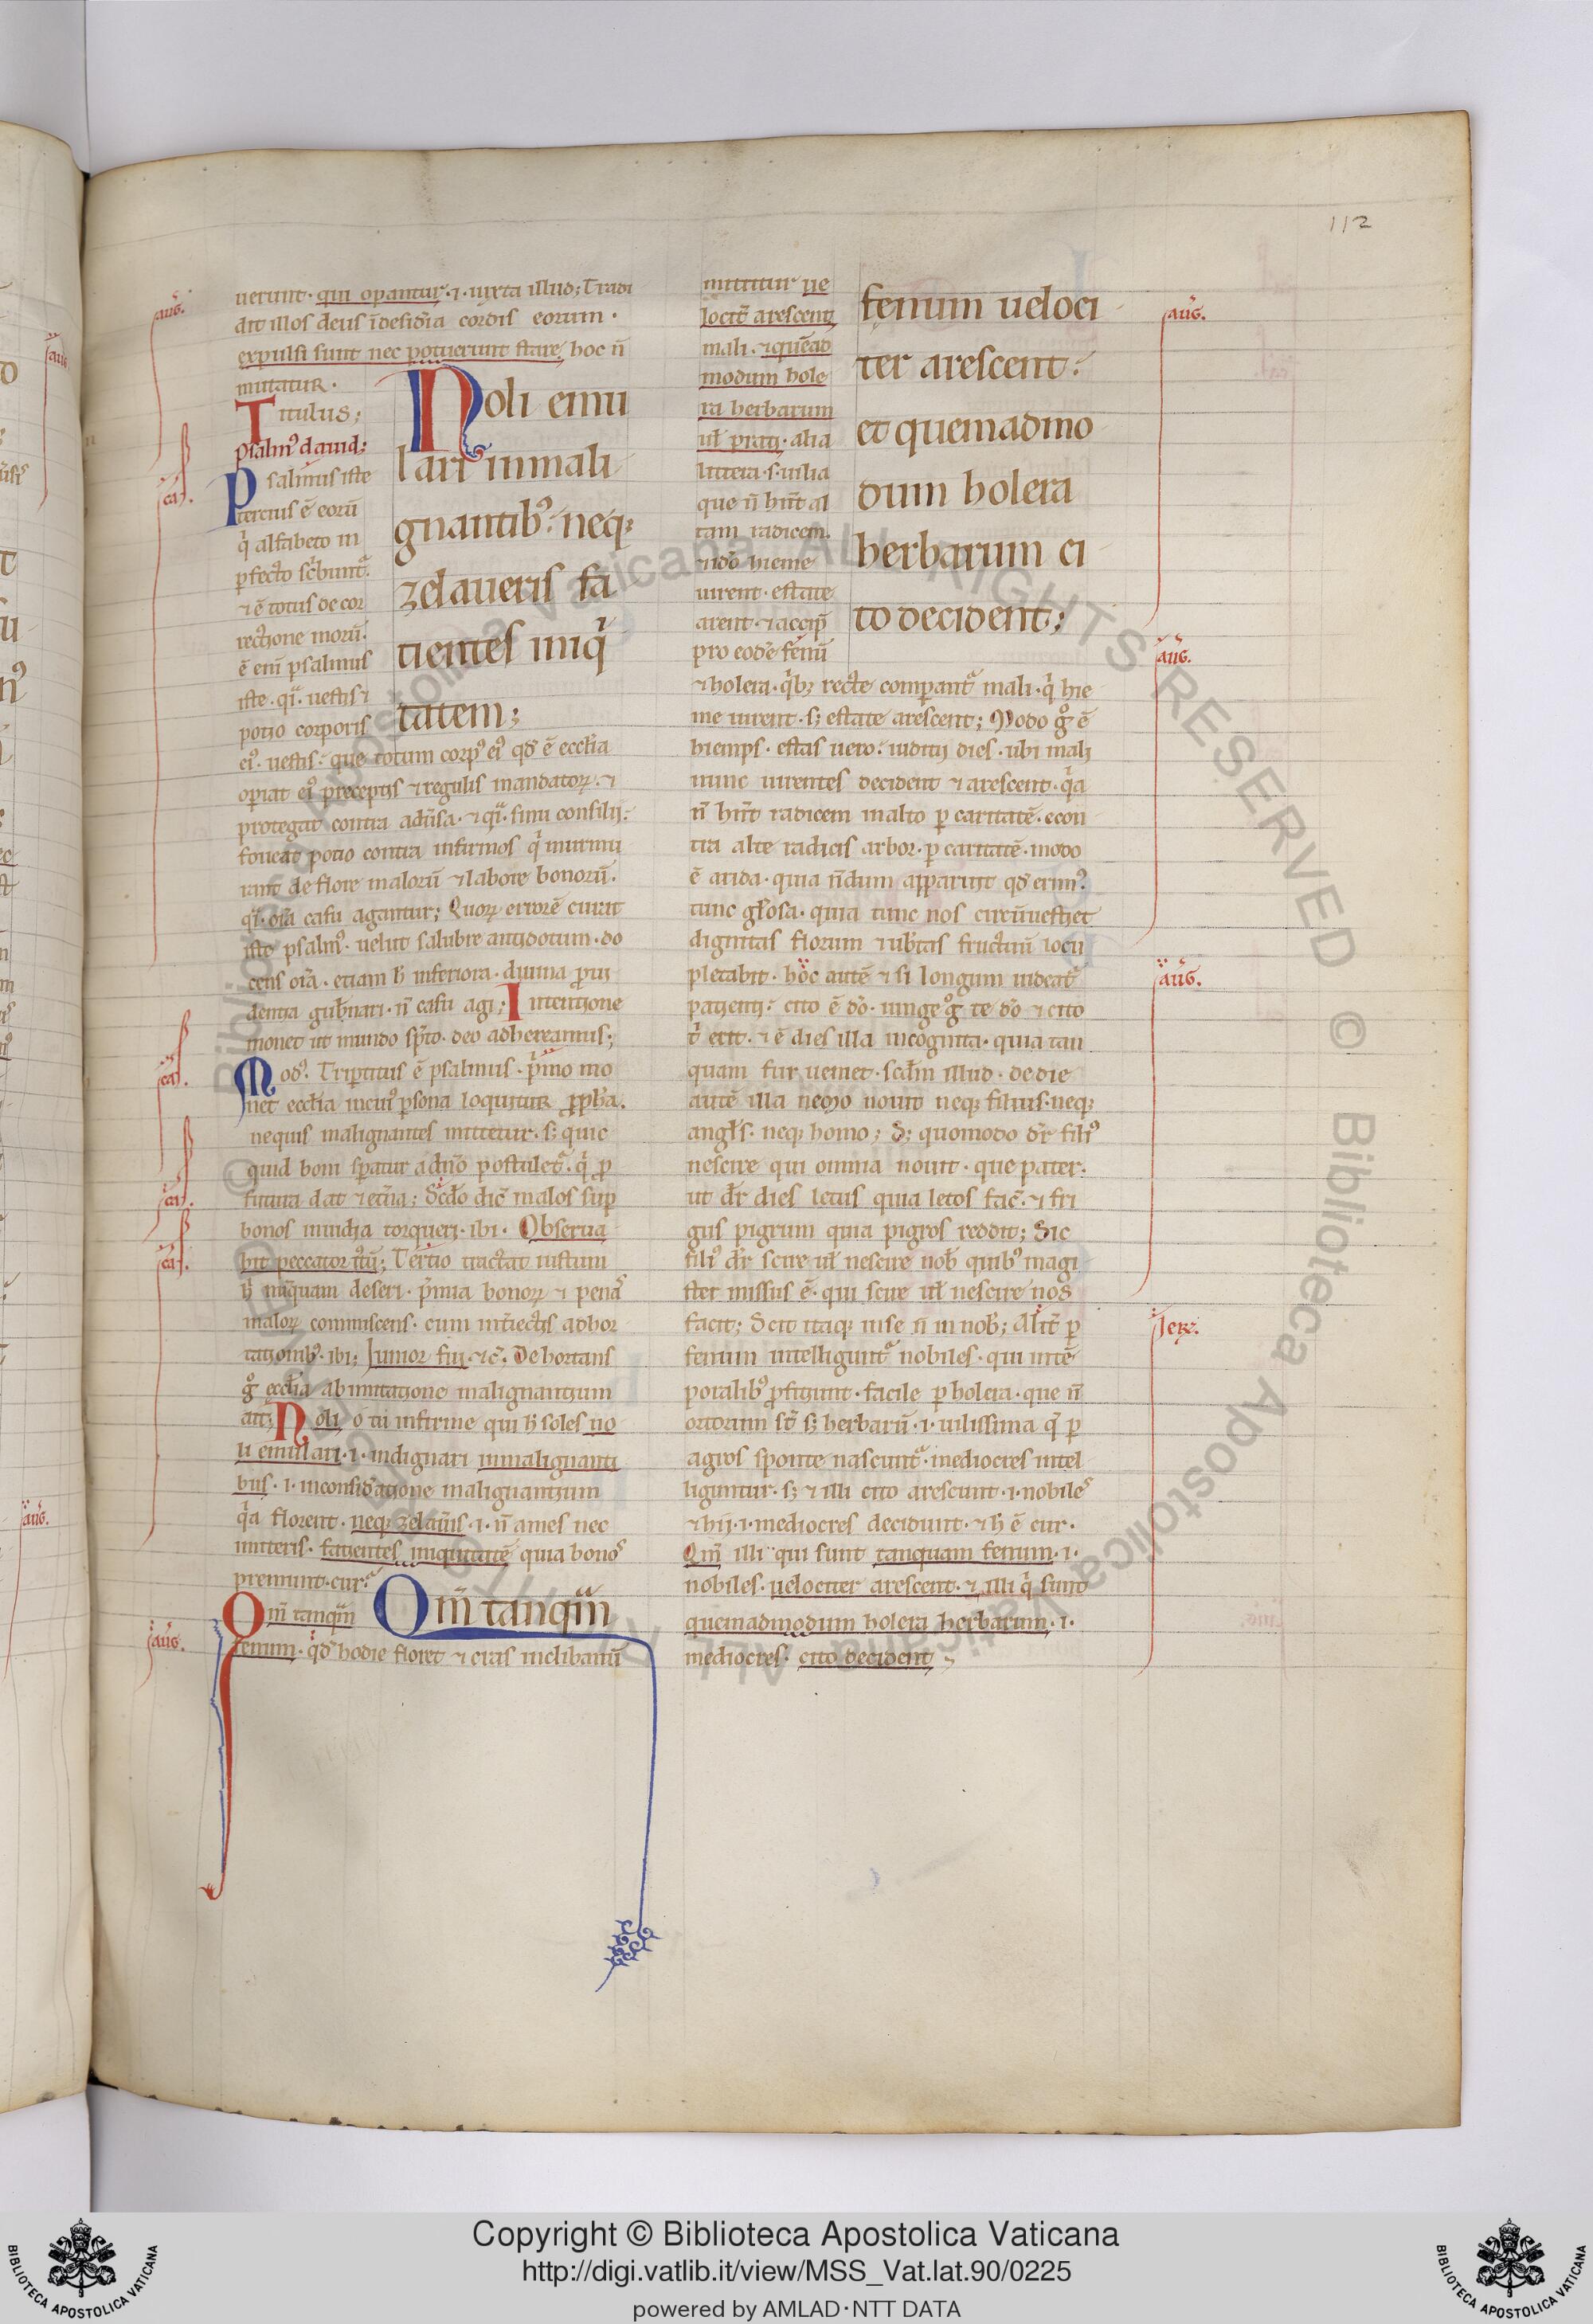 112
uerunt· qui opantur·i· iuxta illud; Tradi
dit illos deus ī desid̾ia cordis eorum·
expulsi sunt nec potuerunt stare, hoc n̄
mutatur·
Titulus;
psalmꝰ dauid;
Psalmus iste
tercius ē eorū
q̇ alfabeto in
ꝑfecto sc̾bunt᷑
⁊ ē totus de cor
rectione morū·
ē eni᷑ psalmus
iste· qi· uestis ⁊
potio corporis
Noli emu
lari in mali
gnantibꝰ: neqꝫ
zelaueris fa
cientes iniq̇
tatem;
eiꝰ· uestis: que totum corpꝰ eiꝰ qd̄ ē eccl̄ia
opiat eiꝰ preceptis ⁊ regulis mandatoꝝ· ⁊
protegat contra adū̾sa· ⁊ qi· sinu consilij:
foueat potio contra infirmos q̇ murmu
rant de flore malorū ⁊ labore bonorū·
qi· oīa casu agantur; Quoꝝ errorē curat
iste psalmꝰ· uelut salubre antidotum· do
cens oīa· etiam h̄ inferiora· diuina ꝓui
dentia gub̾nari· n̄ casu agi; Intentione
monet ut mundo sp̄to· deo adhereamus;
Modꝰ· Tripertitus ē psalmus· p̾mo mo
net eccl̄ia in cuiꝰ ꝑsona loquitur ꝓph̄a·
ne quis malignantes imitetur· sꝫ quic
quid boni speratur a dn̄o postulet᷑· q̇ ꝓ
futura dat ⁊ et̾na; Sc̄do dic̄ malos suꝑ
bonos inuidia torqueri· ibi· Obserua
bit peccator iū̾; Tertio tractat iustum
h̄ nūquam deseri· p̾mia bonoꝝ ⁊ penas
maloꝝ commiscens· cum int̾iectis adhor
tationibꝰ· ibi; Iunior fui· ⁊c̄· Dehortans
gͦ eccl̄ia ab imitatione malignantium
ait; Noli o tu infirme qui h̄ soles no
li emulari· i· indignari in malignanti
bus· i· in consid̾atione malignantium
q̇a florent· neqꝫ zelaueris· i· n̄ ames nec
imiteris· facientes iniquitatē quia bonos
premunt· cur?
Qm̄ tanqm̄
Qm̄ tanqm̄
fenum· qd̄ hodie floret ⁊ cras in clibanū
mittitur ue
locit̾ arescent
mali· ⁊ quēad
modum hole
ra herbarum
ul̄ prati· alia
littera· s· uilia
que n̄ hn̄t al
tam radicem·
⁊ ido hieme
uirent· estate
arent· ⁊ accip̄
pro eodē fenū
fenum ueloci
ter arescent:
et quemadmo
dum holera
herbarum ci
to decident;
⁊ holera· q̇bꝫ recte comparant᷑ mali· q̇ hie
me uirent· sꝫ estate arescent; Modo gͦ ē
hiemps· estas uero: iudicij dies· ubi mali
nunc uirentes decident ⁊ arescent· q̇a
n̄ hn̄t radicem in alto ꝑ caritatē· econ
tra alte radicis arbor· ꝑ caritatē· modo
ē arida· quia n̄dum apparuit qd̄ erimꝰ·
tunc gl̄osa· quia tunc nos circūuestiet
dignitas florum ⁊ ub̾tas fructuū locu
pletabit· hoc autē ⁊ si longum uideat᷑
patienti: cito ē dō· iunge gͦ te dō ⁊ cito
t̾ erit· ⁊ ē dies illa incognita· quia tan
quam fur ueniet· scd̄m illud· de die
autē illa nemo nouit neqꝫ filius· neqꝫ
angl̄s· neqꝫ homo; Sꝫ quomodo dr̄ filiꝰ
nescire qui omnia nouit· que pater·
ut dr̄ dies letus quia letos fac̄· ⁊ fri
gus pigrum quia pigros reddit; Sic
filiꝰ dr̄ scire ul̄ nescire nob̄ quibꝰ magi
ster missus ē· qui scire ul̄ nescire nos
facit; Scit itaqꝫ in se n̄ in nob̄; Alit̾ ꝑ
fenum intelligunt᷑ nobiles· qui in tē
poralibꝰ ꝓficiunt· facile ꝑ holera· que n̄
ortorum st̄ sꝫ herbarū· i· uilissima q̄ ꝑ
agros sponte nascunt᷑· mediocres intel
liguntur· sꝫ ⁊ illi cito arescunt· i· nobiles
⁊ hij· i· mediocres decidunt· ⁊ h̄ ē cur·
Qm̄ illi qui sunt tanquam fenum· i·
nobiles· uelociter arescent· ⁊ illi q̇ sunt
quemadmodum holera herbarum· i·
mediocres· cito decident;
aug̾·
ca᷑·
ca᷑·
ca᷑·
ca᷑·
aug̾·
aug̾·
aug̾·
aug̾·
Jer̾·
© Biblioteca Apostolica Vaticana ALL RIGHTS RESERVED
Copyright © Biblioteca Apostolica Vaticana
http://digi.vatlib.it/view/MSS_Vat.lat.90/0225
powered by AMLAD·NTT DATA
BIBLIOTECA APOSTOLICA VATICANA
BIBLIOTECA APOSTOLICA VATICANA